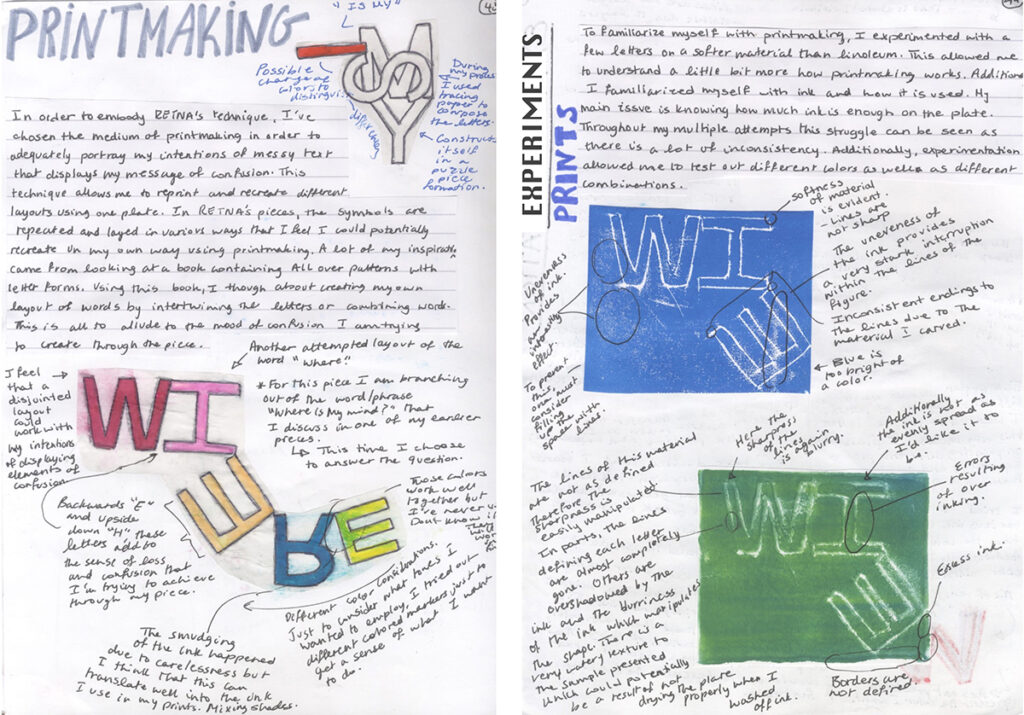 PRINTMAKING
"IS MY"
Possible
change of
color to
distinguish
difference
During
my process
I used
tracing
paper to
compose
the letters.
Constructs
itself in
a
puzzle piece
formation.
In order to embody RETNA's technique, I've
chosen the medium of printmaking in order to
adequately portray my intentions of messy text
that displays my message of confusion. This
technique allows me to reprint and recreate different
layouts using one plate. In RETNA's pieces, the symbols are
repeated and layed in various ways that I feel I could potentially
recreate in my own way using printmaking. A lot of my inspiration
came from looking at a book containing All over patterns with
letter forms. Using this book, I though about creating my own
layout of words by intertwining the letters or combining word.
This is all to allude to the mood of confusion I am trying
to create through the piece.
Another attempted layout of the
word "Where."
I feel
that a
disjointed
layout
could
work with
my intentions
of displaying
elements of
confusion.
* For this piece I am branching
out of the word/phrase
"Where is My mind?" that
I discuss in one of my earlier
pieces.
↳ This time I choose
to answer the question.
WI
E
RE
Backwards "E"
and upside
down "H" these
letters add to
the sense of loss
and confusion that
I'm trying to achieve
through my piece.
Those colors
work well
together but
I've never
Dont know if
Different color considerations.
Just to consider what tones I
wanted to employ, I tried out
different colored markers just to
get a sense
of what I want
to do.
The smudging
of the ink happened
due to carelessness but
I think that this can
translate well into the ink
I use in my prints. Mixing shades.
EXPERIMENTS
PRINTS
To familiarize myself with printmaking, I experimented with a
few letters on a softer material than linoleum. This allowed me
to understand a little bit more how printmaking works.
I familiarized myself with ink and how it is used. My
main issue is knowing how much ink is enough on the plate.
Throughout my multiple attempts this struggle can be seen as
there is a lot of inconsistency. Additionally, experimentation
allowed me to test out different colors as well as different
combinations.
softness
of material
is evident.
- Lines are
not sharp
The uneveness of
the ink provides
a very stark interruption
within the lines of the
figure.
Inconsistent endings to
the lines due to the
material I carved.
Blue is
too bright of
a color.
Uneveness
of ink
Provides
an
interesting
effect.
To prevent
this,
one must
consider
filling
up the
space with
lines.
WI
E
Here the
sharpness
of the
lines again
is blurry.
Additionally
the ink is not as
evenly spread as
I'd like it to
be.
Errors
resulting
of over
inking.
The lines of this material
are not as defined
therefore the
sharpness is
easily manipulated.
In parts, the lines
defining each letter
are almost completely
gone. Others are
overshadowed by the
ink and the blurriness
of the ink which manipulates
the shape. There is a
very watery texture to
the sample presented
which could potentially
be a result of not
drying the plate
properly when I
washed
off ink.
WI
E
Exess ink.
Borders are
not defined